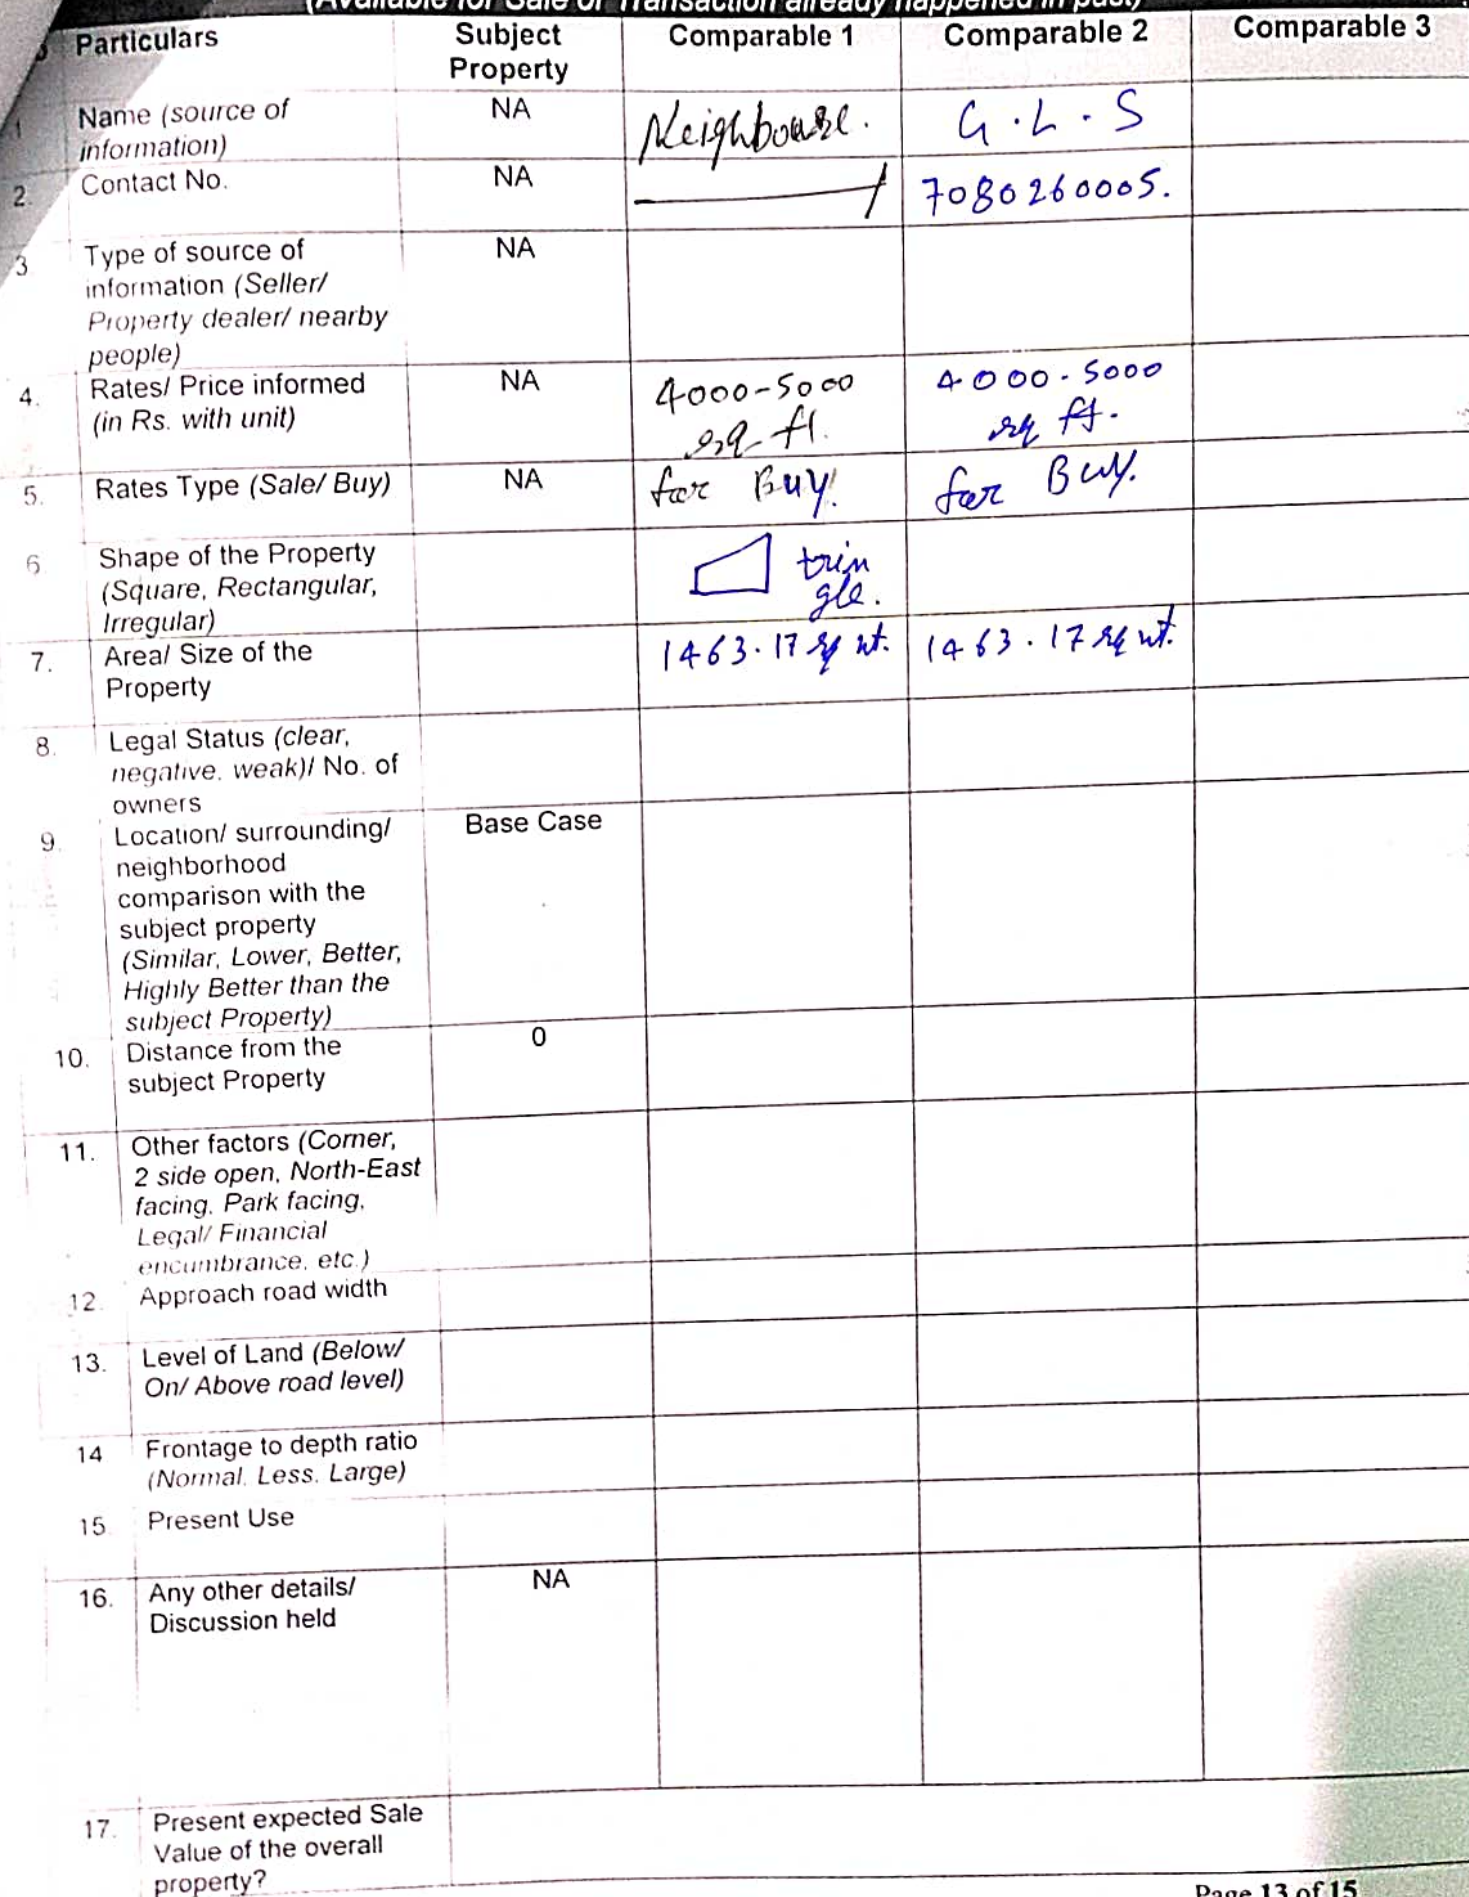 (Available for Sale or Transaction already happened in past)
Particulars Subject Property Comparable 1 Comparable 2 Comparable 3
1 Name (source of NA Neighbourl. G.L.S
information)
2. Contact No. NA 7080260005.
3 Type of source of NA
information (Seller/
Property dealer/ nearby
people)
4. Rates/ Price informed NA 4000-5000 4000-5000
(in Rs. with unit) sq-ft. sq ft.
5. Rates Type (Sale/ Buy) NA for Buy. for Buy.
6. Shape of the Property trin
(Square, Rectangular, gle.
Irregular)
7. Area/ Size of the 1463.17 sq mt. 1463.17 sq mt.
Property
8. Legal Status (clear,
negative, weak)/ No. of
owners
9. Location/ surrounding/ Base Case
neighborhood
comparison with the
subject property
(Similar, Lower, Better,
Highly Better than the
subject Property)
10. Distance from the 0
subject Property
11. Other factors (Corner,
2 side open, North-East
facing, Park facing,
Legal/ Financial
encumbrance, etc.)
12. Approach road width
13. Level of Land (Below/
On/ Above road level)
14 Frontage to depth ratio
(Normal, Less, Large)
15. Present Use
16. Any other details/ NA
Discussion held
17. Present expected Sale
Value of the overall
property?
Page 13 of 15